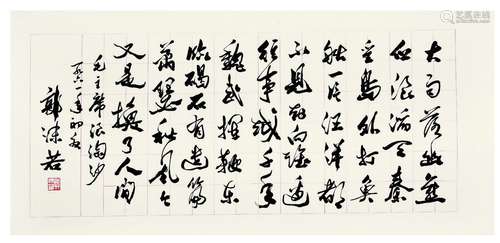 大雨落幽燕
白浪滔天秦
皇島外打魚
船一片汪洋都
不見知向誰邊
往事越千年
魏武揮鞭東
臨碣石有遺篇
蕭瑟秋風今
又是換了人間
毛主席浪淘沙
一九六一年初
郭沫若